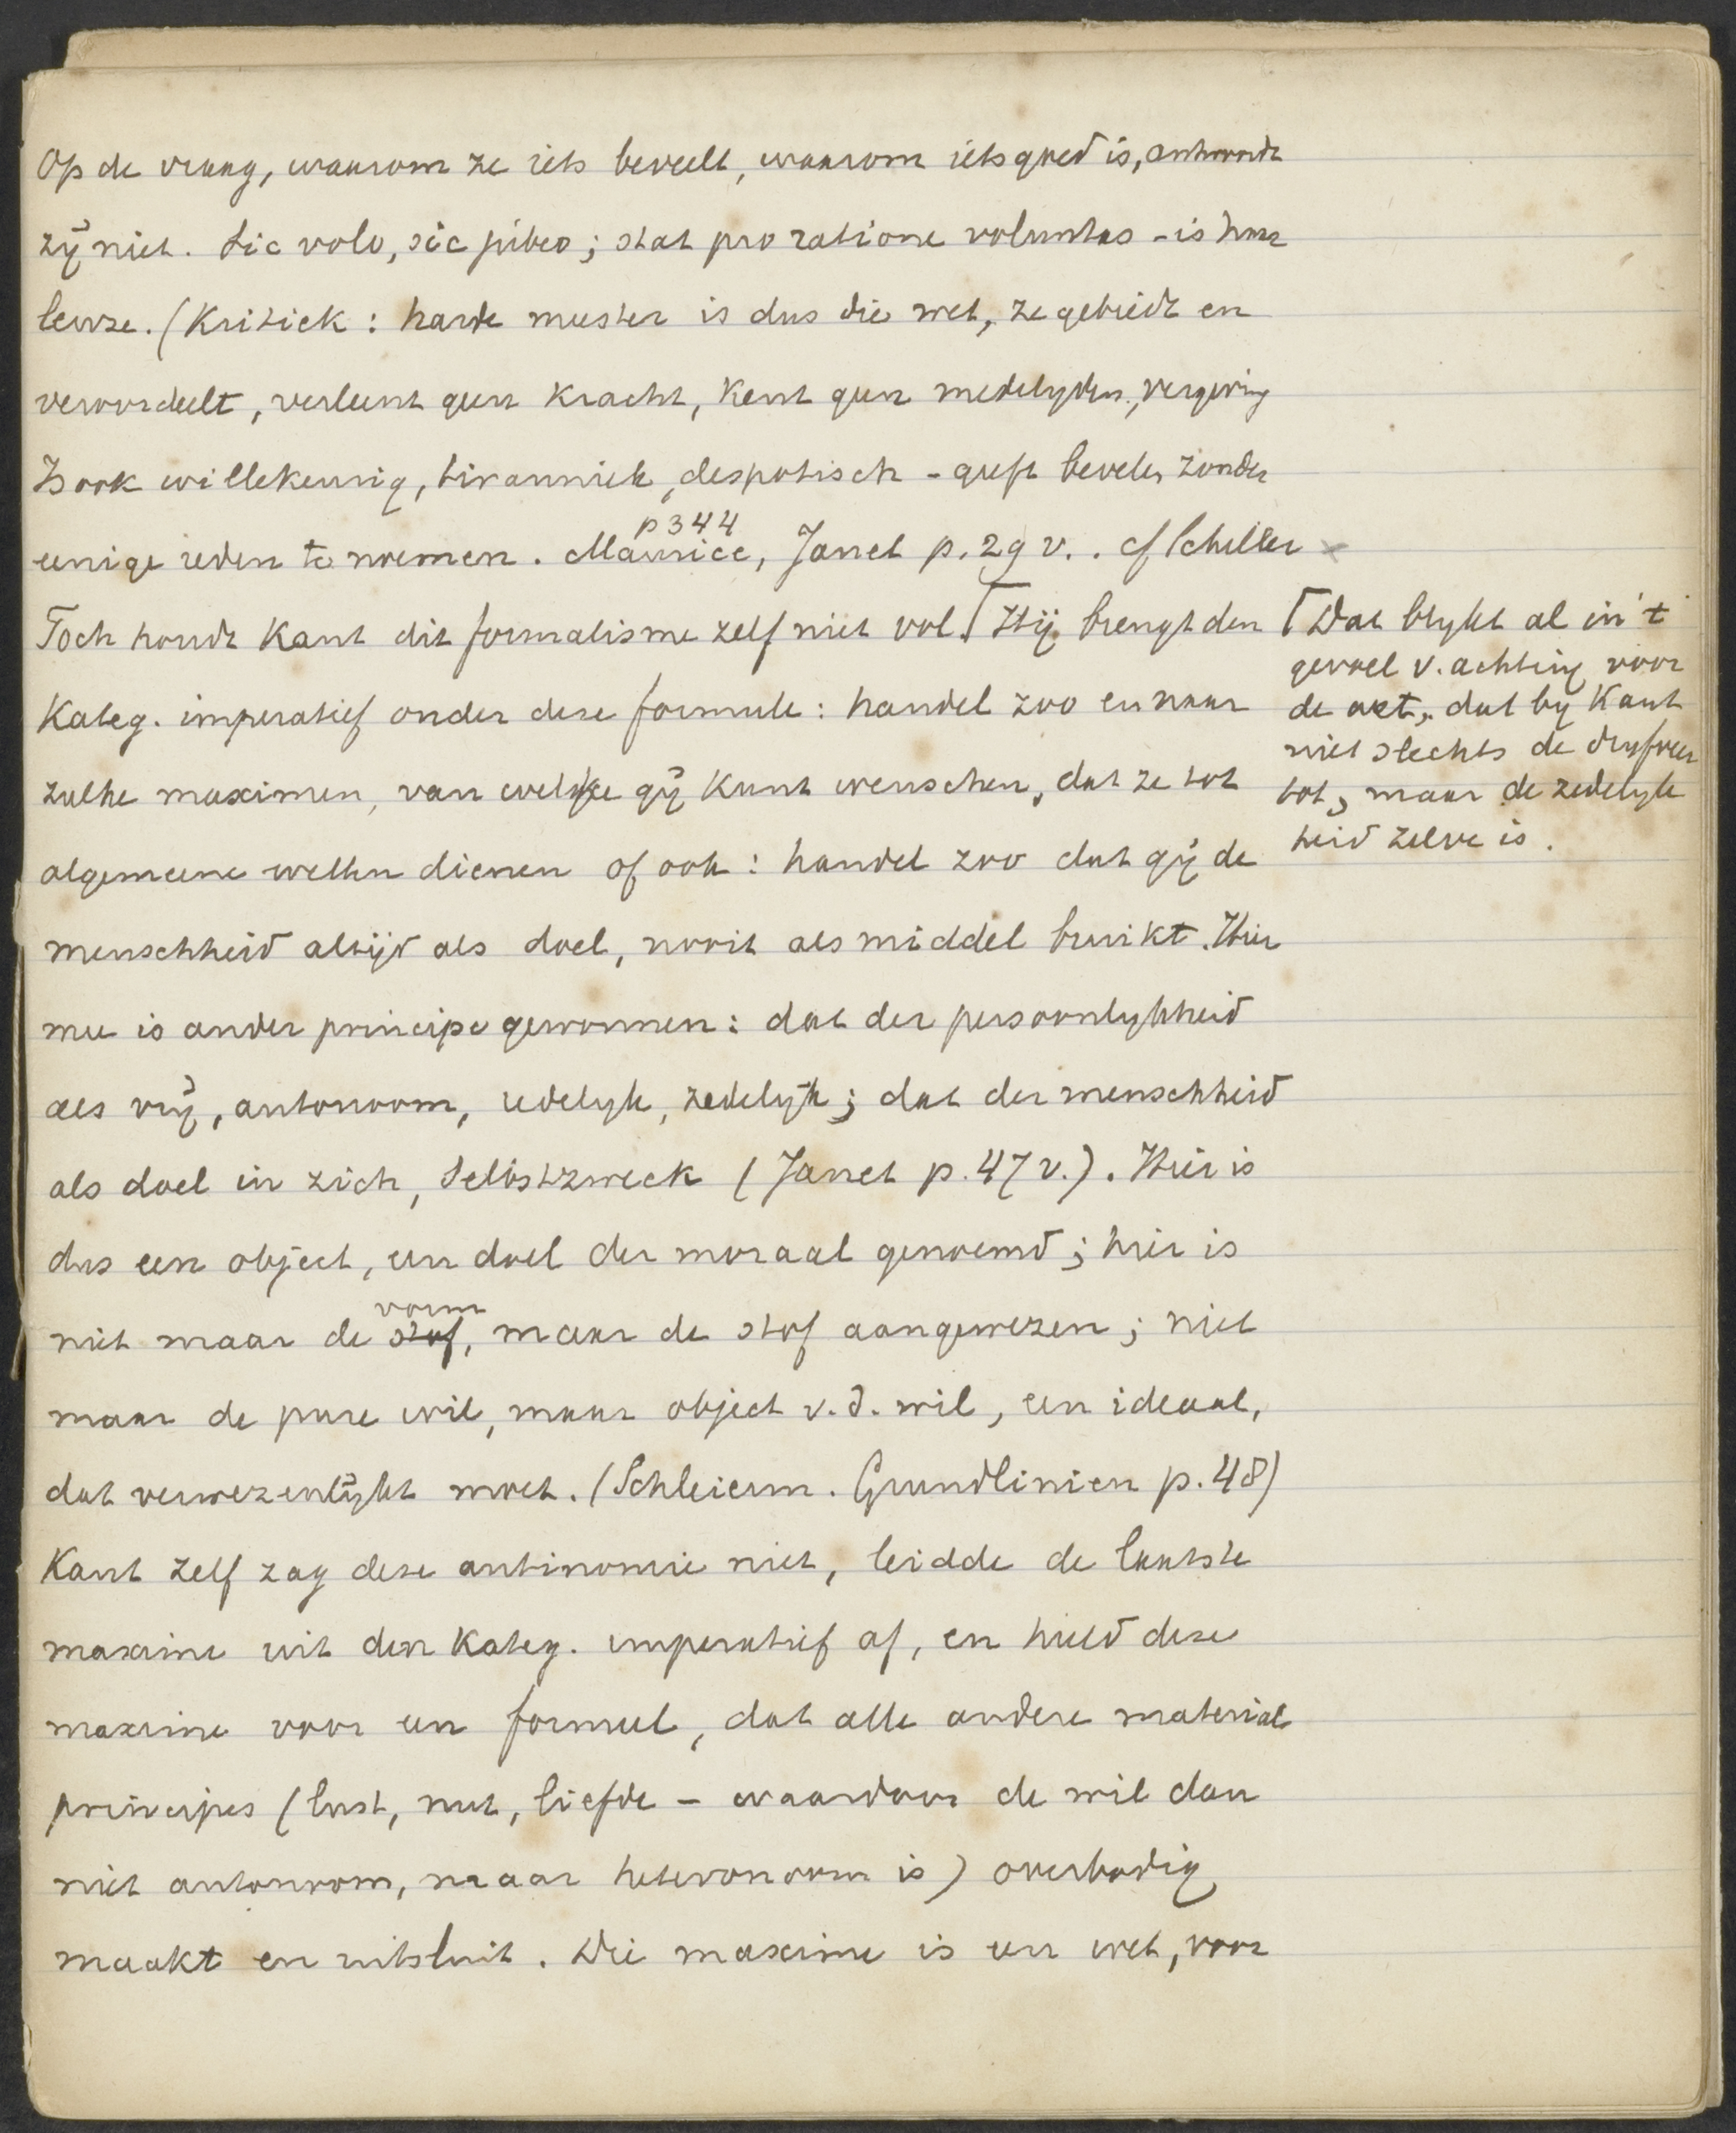 Op de vraag, waarom ze iets beveelt, waarom iets goed is, antwoordt
zij niet. Sic volo, sic jubeo; stat pro ratione voluntas - is haar
leuze. (Kritiek: harde meester is dus die wet, ze gebiedt en
veroordeelt, verleent geen kracht, kent geen medelyden, vergeving
Is ook willekeurig, tiranniek, despotisch - geeft bevelen zonder
p 344
eenige reden te noemen. Maurice, Janet p. 29 v.. cf Schiller ×
Toch houdt Kant dit formalisme zelf niet vol. ⌈ Hij brengt den
Kateg. imperatief onder deze formule: handel zoo en naar
zulke maximen, van welke gij kunt wenschen, dat ze tot
algemeene wetten dienen of ook: handel zoo dat gij de
menschheid altijd als doel, nooit als middel bruikt. Hier
mee is ander principe gewonnen: dat der persoonlykheid
als vrij, autonoom, redelyk, zedelijk; dat der menschheid
als doel in zich, Selbstzweck (Janet p. 47 v.). Hier is
dus een object, een doel der moraal genoemd; hier is
vorm
niet maar de stof, maar de stof aangewezen; niet
maar de pure wil, maar object v.d. wil, een ideaal,
dat verwezenlijkt moet. (Schleierm. Grundlinien p. 48)
Kant zelf zag deze antinomie niet, leidde de laatste
maxime uit den Kateg. imperatief af, en hield deze
maxime voor een formeel, dat alle andere material
principes (lust, nut, liefde - waardoor de wil dan
niet autonoom, maar heteronoom is) overbodig
maakt en uitsluit. Die maxime is een wet, voor
⌈ Dat blykt al in 't
gevoel v. achting voor
de wet, dat by Kant
niet slechts de dryfveer
tot, maar de zedelyk
heid zelve is.